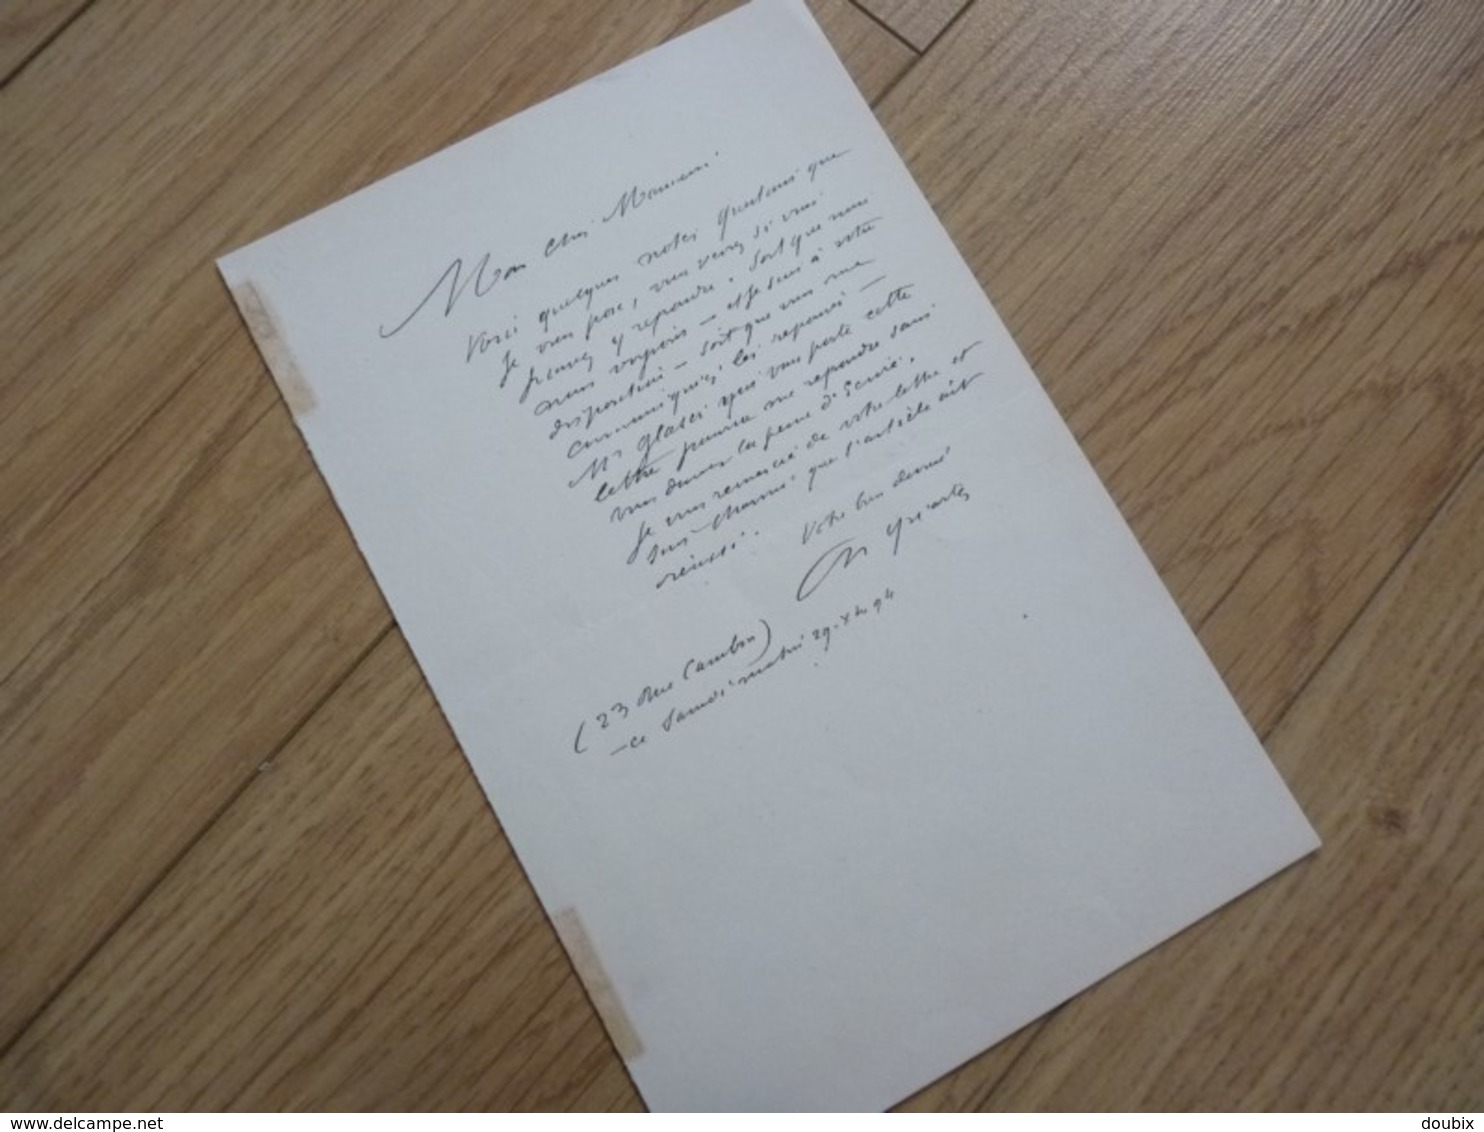 Mon cher Monsieur.
Voici quelques notes questions que
je vous pose, vous verrez si vous
pouvez y repondre. soit que nous
nous voyions — et je suis à votre
disposition — soit que vous me
communiquiez les reponses —
Mr Glaser qui vous porte cette
lettre pourra me repondre sans
vous donner la peine d'écrire.
Je vous remercie de votre lettre et
suis charmé que l'article ait
réussi.
Votre bien devoué
(23 rue Cambon)
— ce samedi matin 29. Xbre 94
© delcampe.net
doubix